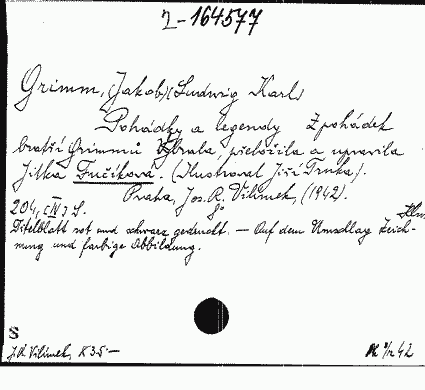 2-164577
Grimm, (Jakob) (Ludwig Karl)
Pohádky a legendy Z pohádek
bratří Grimmů Vybrala, přeložila a upravila
Jitka Fučíková. (Ilustroval Jiří Trnka).
Praha, Jos. R. Vilímek, (1942).
204, [IV] S. 8°
Titelblatt rot und schwarz gedruckt. — Auf dem Umschlag Zeich-
nung und farbige Abbildung.
S
J. R. Vilímek, K 35.—